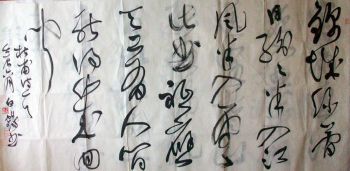 锦城丝管
日纷纷半入江
风半入云
此曲祗应
天上有人间
能得几回
闻
杜甫诗一首